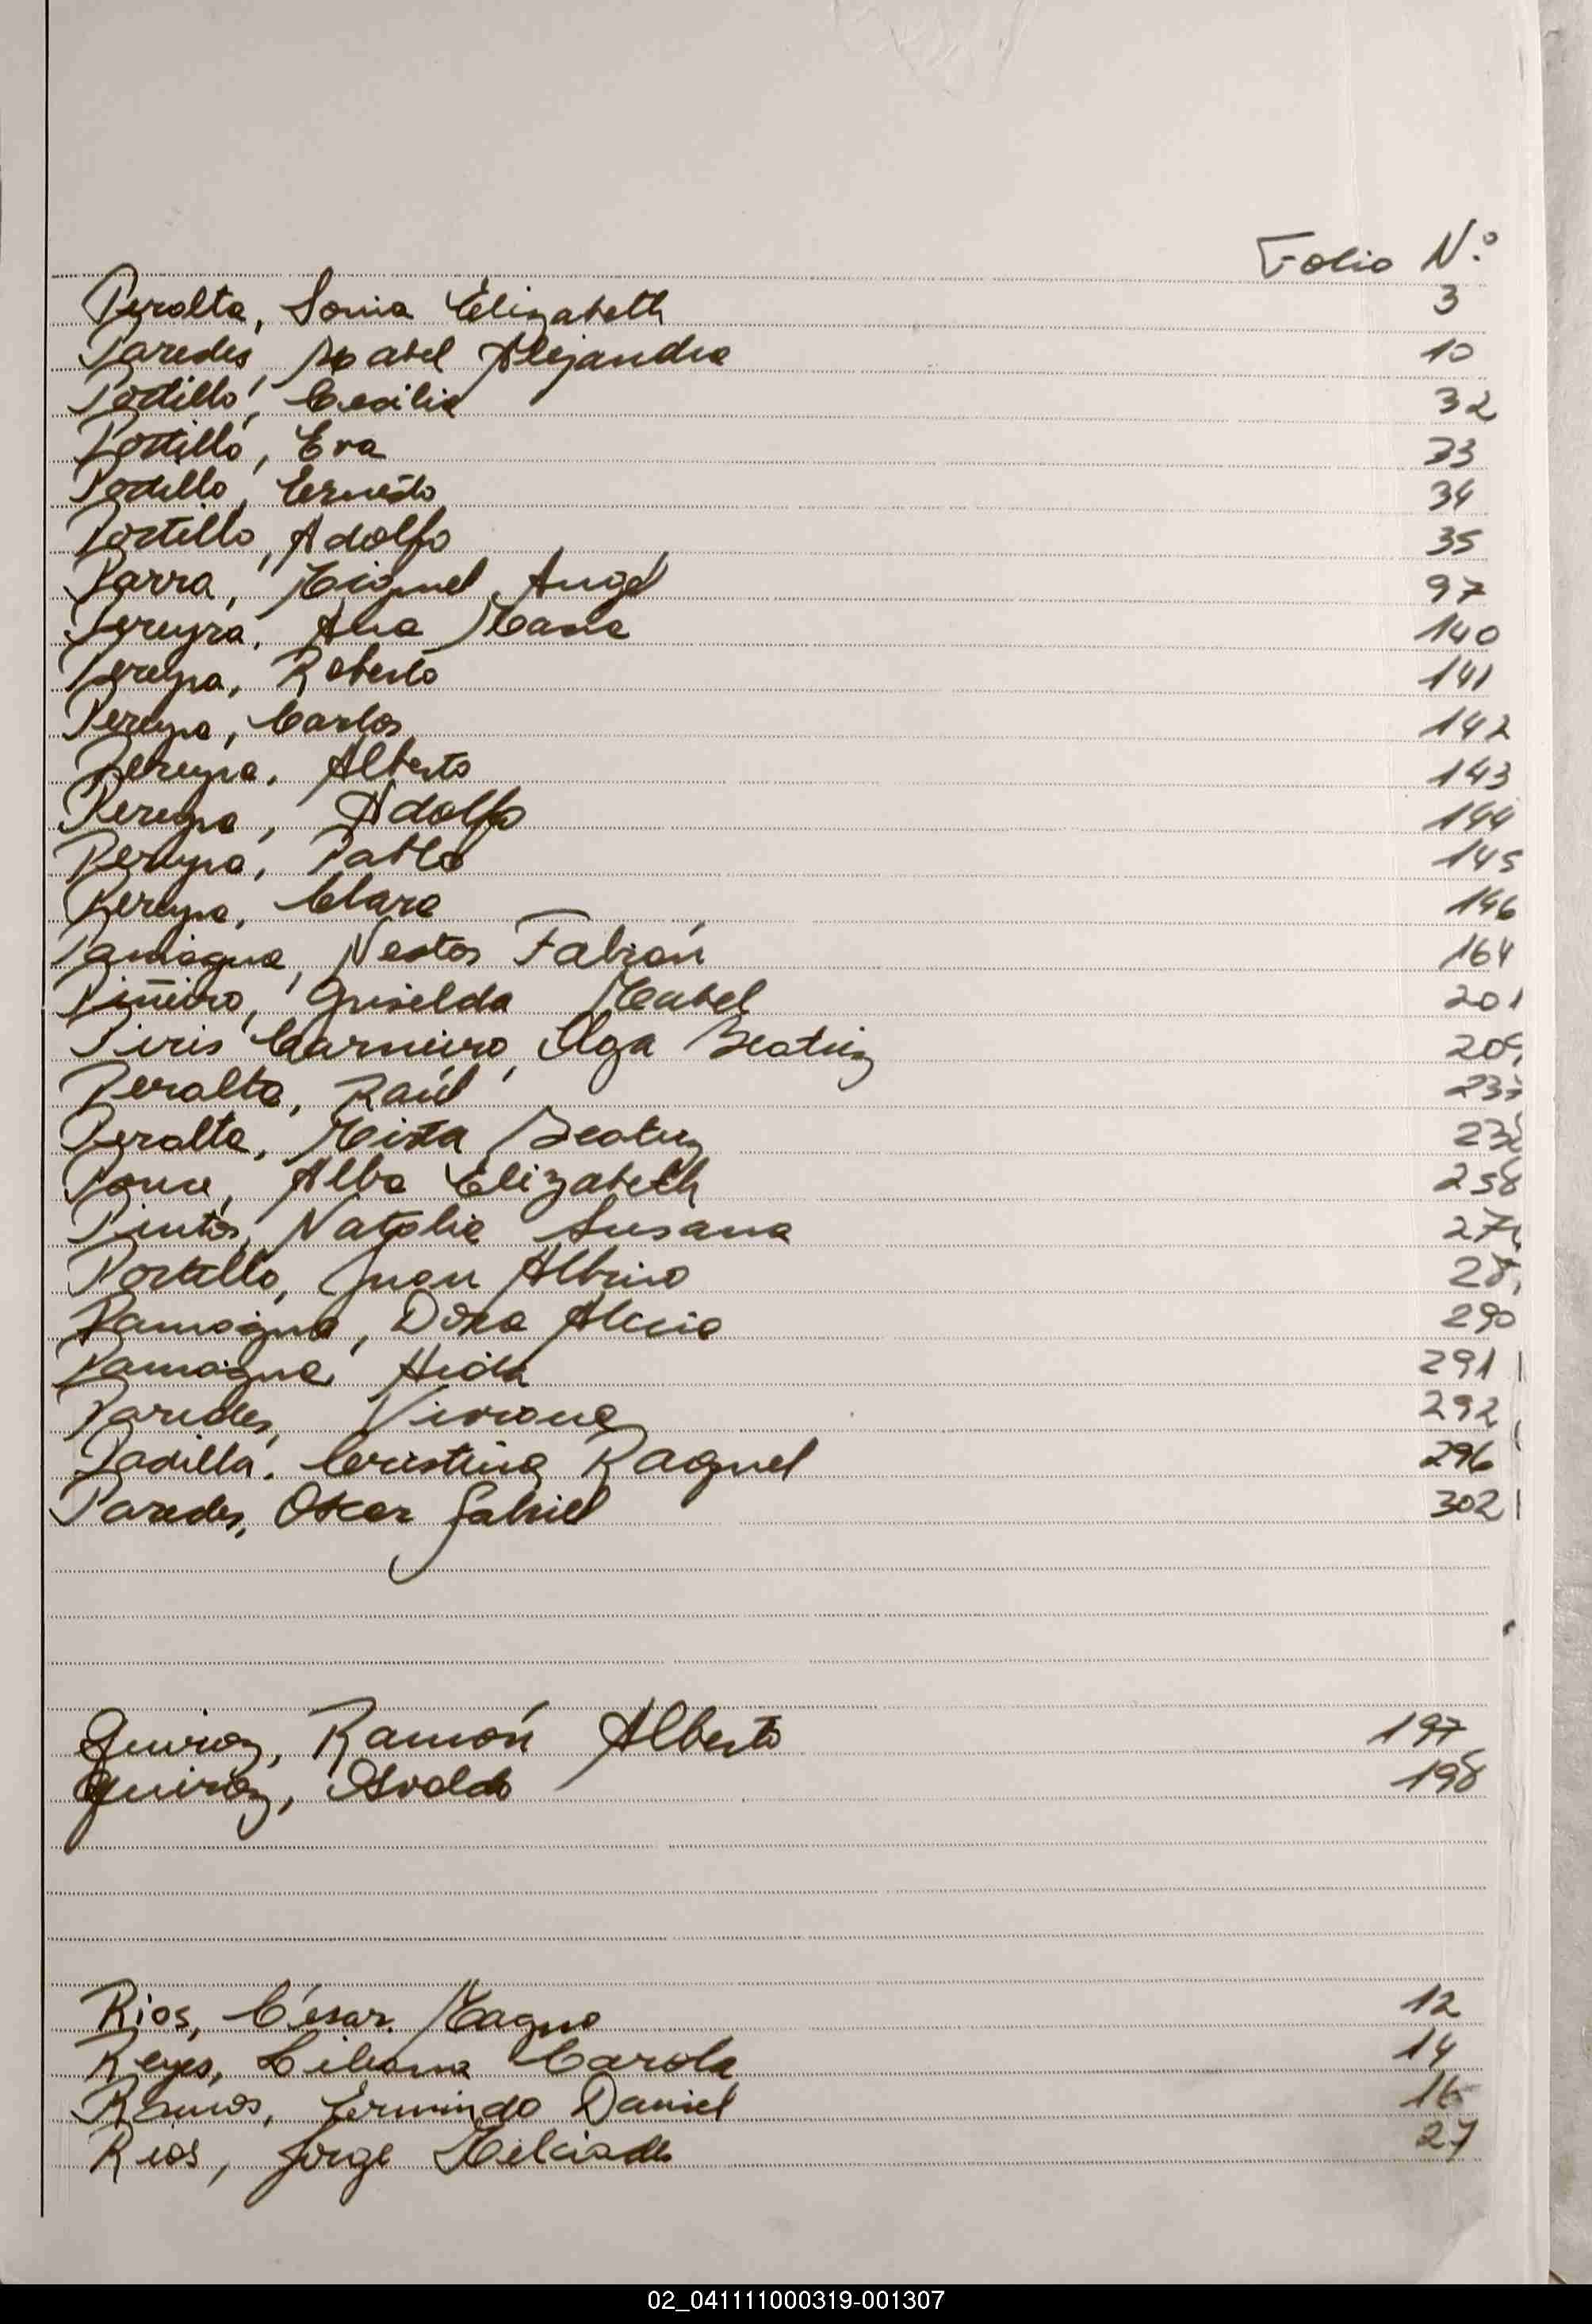 Folio N.º
Peralta, Sonia Elizabeth 3
Paredes, Mabel Alejandra 10
Portillo, Cecilia 32
Portillo, Eva 33
Portillo, Ernesto 34
Portillo, Adolfo 35
Parra, Miguel Angel 97
Pereyra, Ana Maria 140
Pereyra, Roberto 141
Pereyra, Carlos 142
Pereyra, Alberto 143
Pereyra, Adolfo 144
Pereyra, Pablo 145
Pereyra, Clara 146
Paniagua, Nestor Fabián 164
Piñeiro, Griselda Mabel 201
Piris Carneiro, Olga Beatriz
Peralta, Raúl
Peralta, Mirta Beatriz
Ponce, Alba Elizabeth 258
Pintos, Natalia Susana
Portillo, Juan Albino
Paniagua, Dora Alicia 290
Paniagua 291
Paredes, Viviana 292
Padilla, Cristina Raquel 296
Paredes, Oscar Gabriel 302
Quiroz, Ramón Alberto 197
Quiroz, Osvaldo 198
Rios, César Magno 12
Reyes, Liliana Carola 14
Ramos, Daniel
Rios, Jorge Melciades 27
02_041111000319-001307